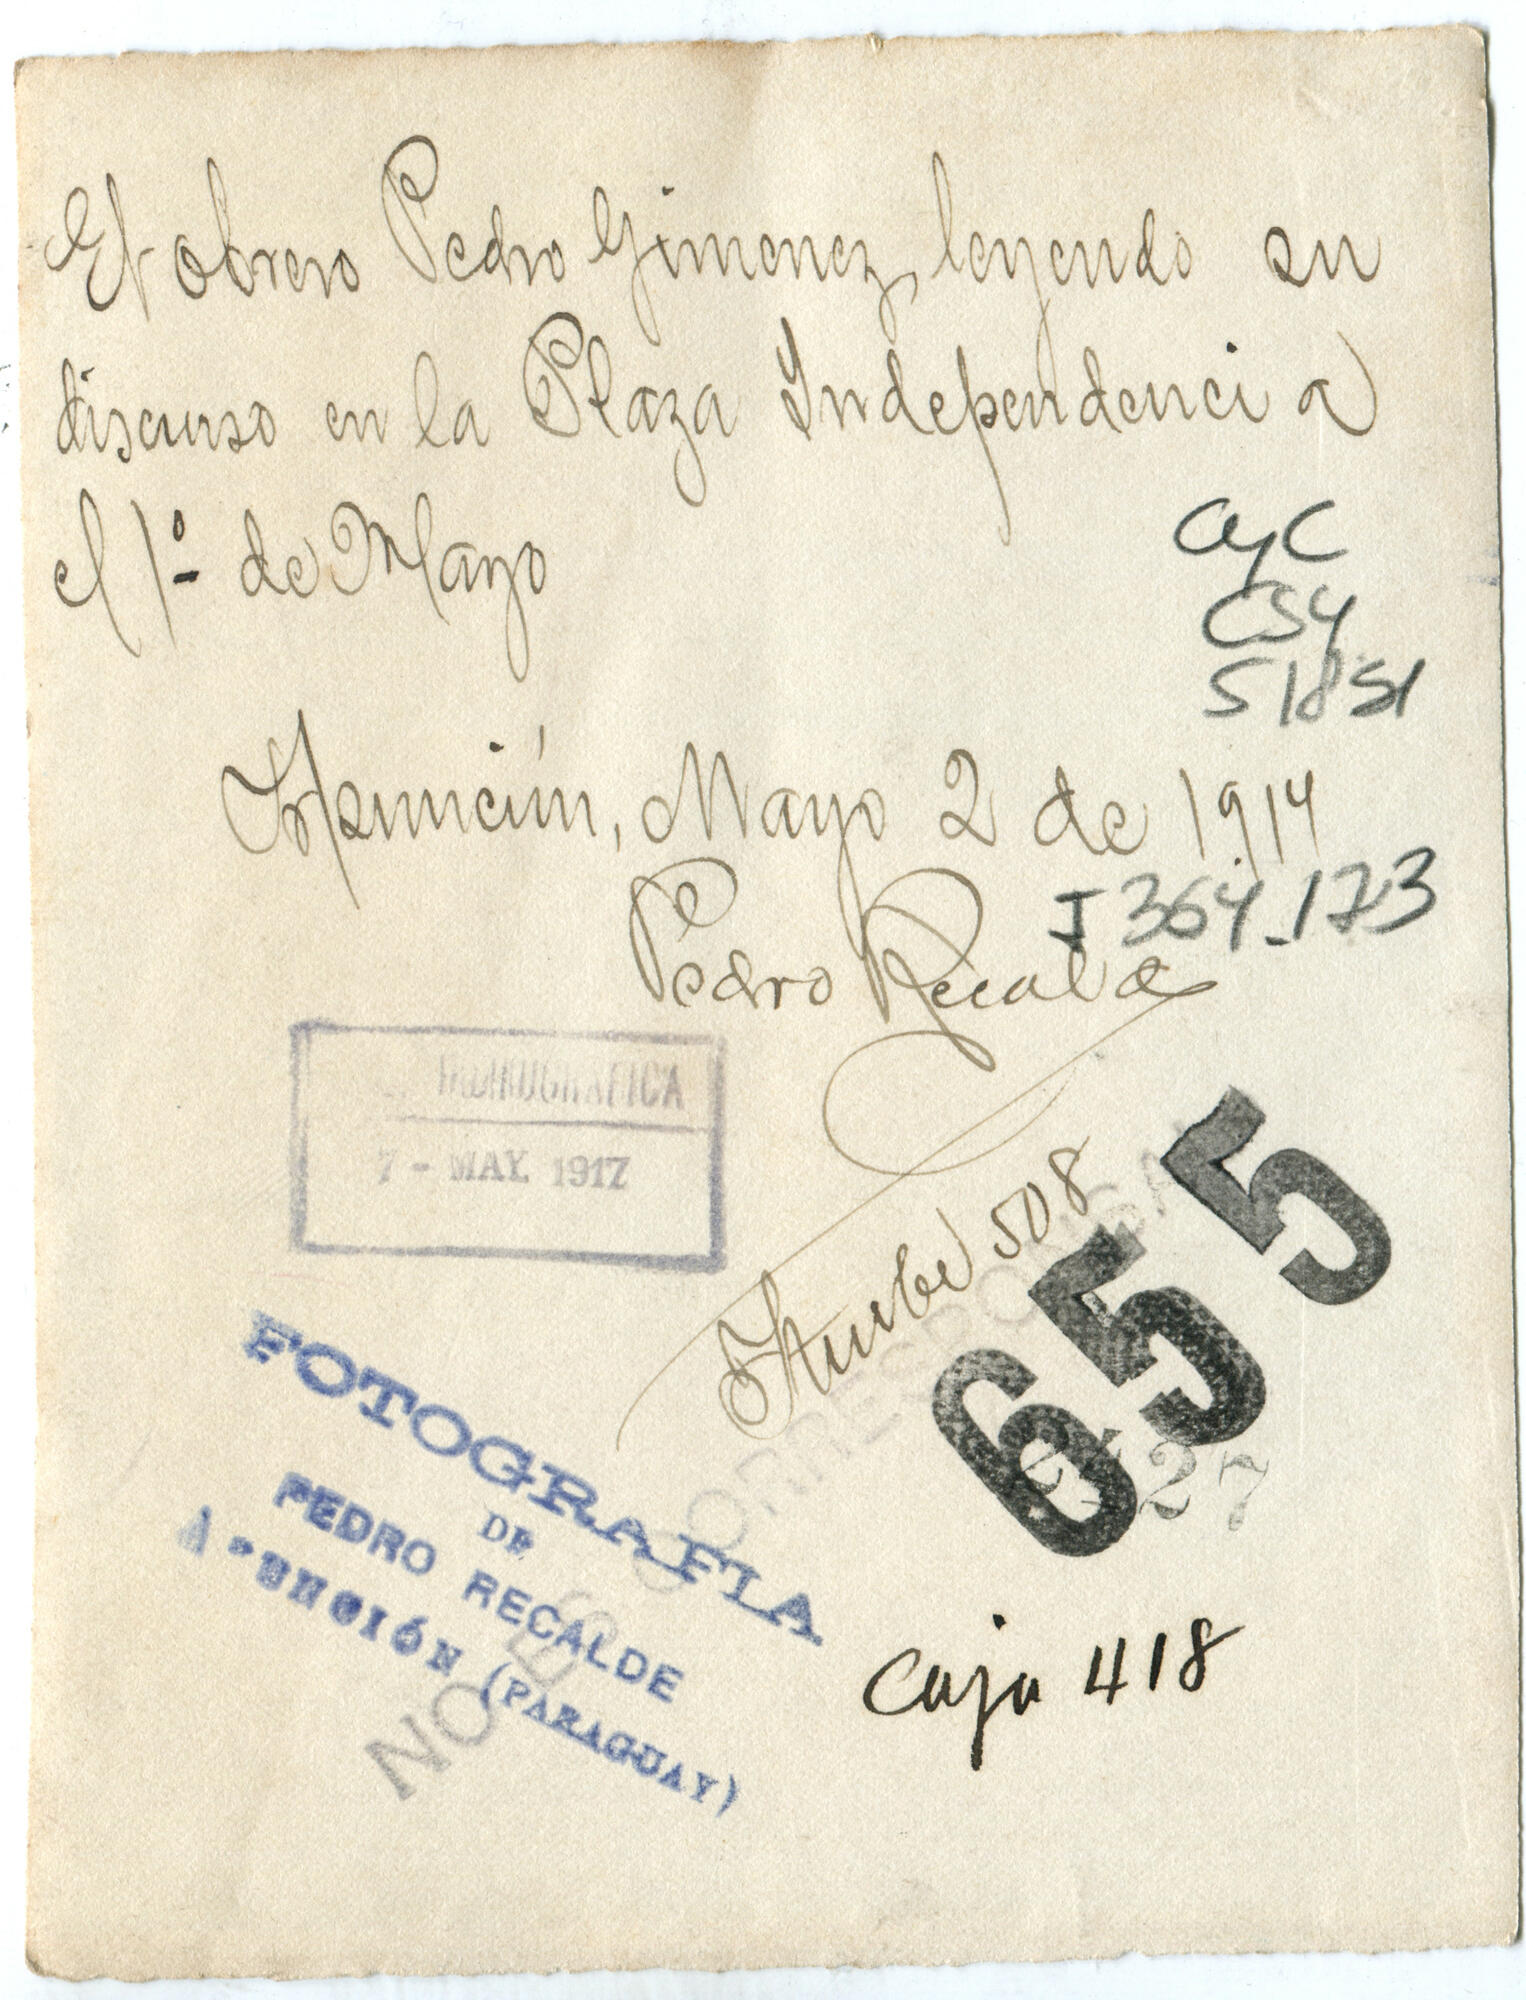 El obrero Pedro Gimenez, leyendo su
discurso en la Plaza Independencia
el 1º de Mayo
CyC
CS4
51851
Asunción, Mayo 2 de 1914
I 364-173
Pedro Recalde
7 - MAY. 1917
Iturbe 508
655
27
FOTOGRAFIA
DE
PEDRO RECALDE
ASUNCIÓN (PARAGUAY)
NO SE
Caja 418